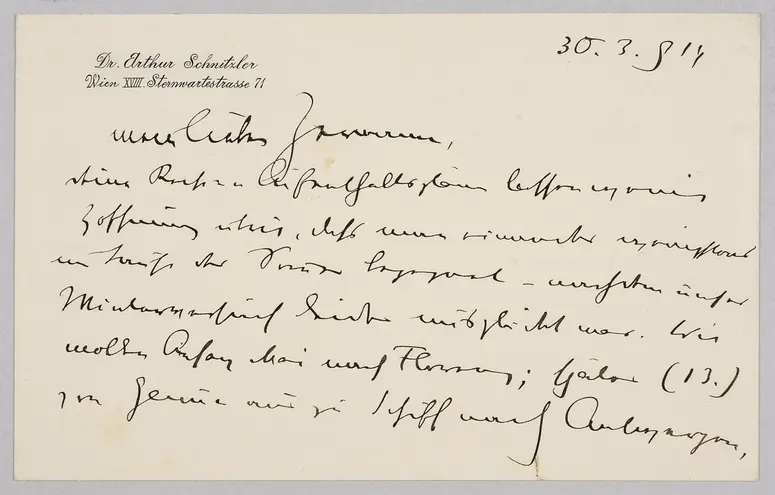 Dr. Arthur Schnitzler
Wien XVIII. Sternwartestrasse 71
30. 3. 914
mein lieber Hermann,
deine Reise- u Aufenthaltspläne lassen
Hoffnung, dass man einander
im Laufe des begegnet – nachdem unser
leider misglückt war. Wir
wollen Anfang Mai nach Florenz; später (13.)
von Genua aus zu Schiff nach Antwerpen,